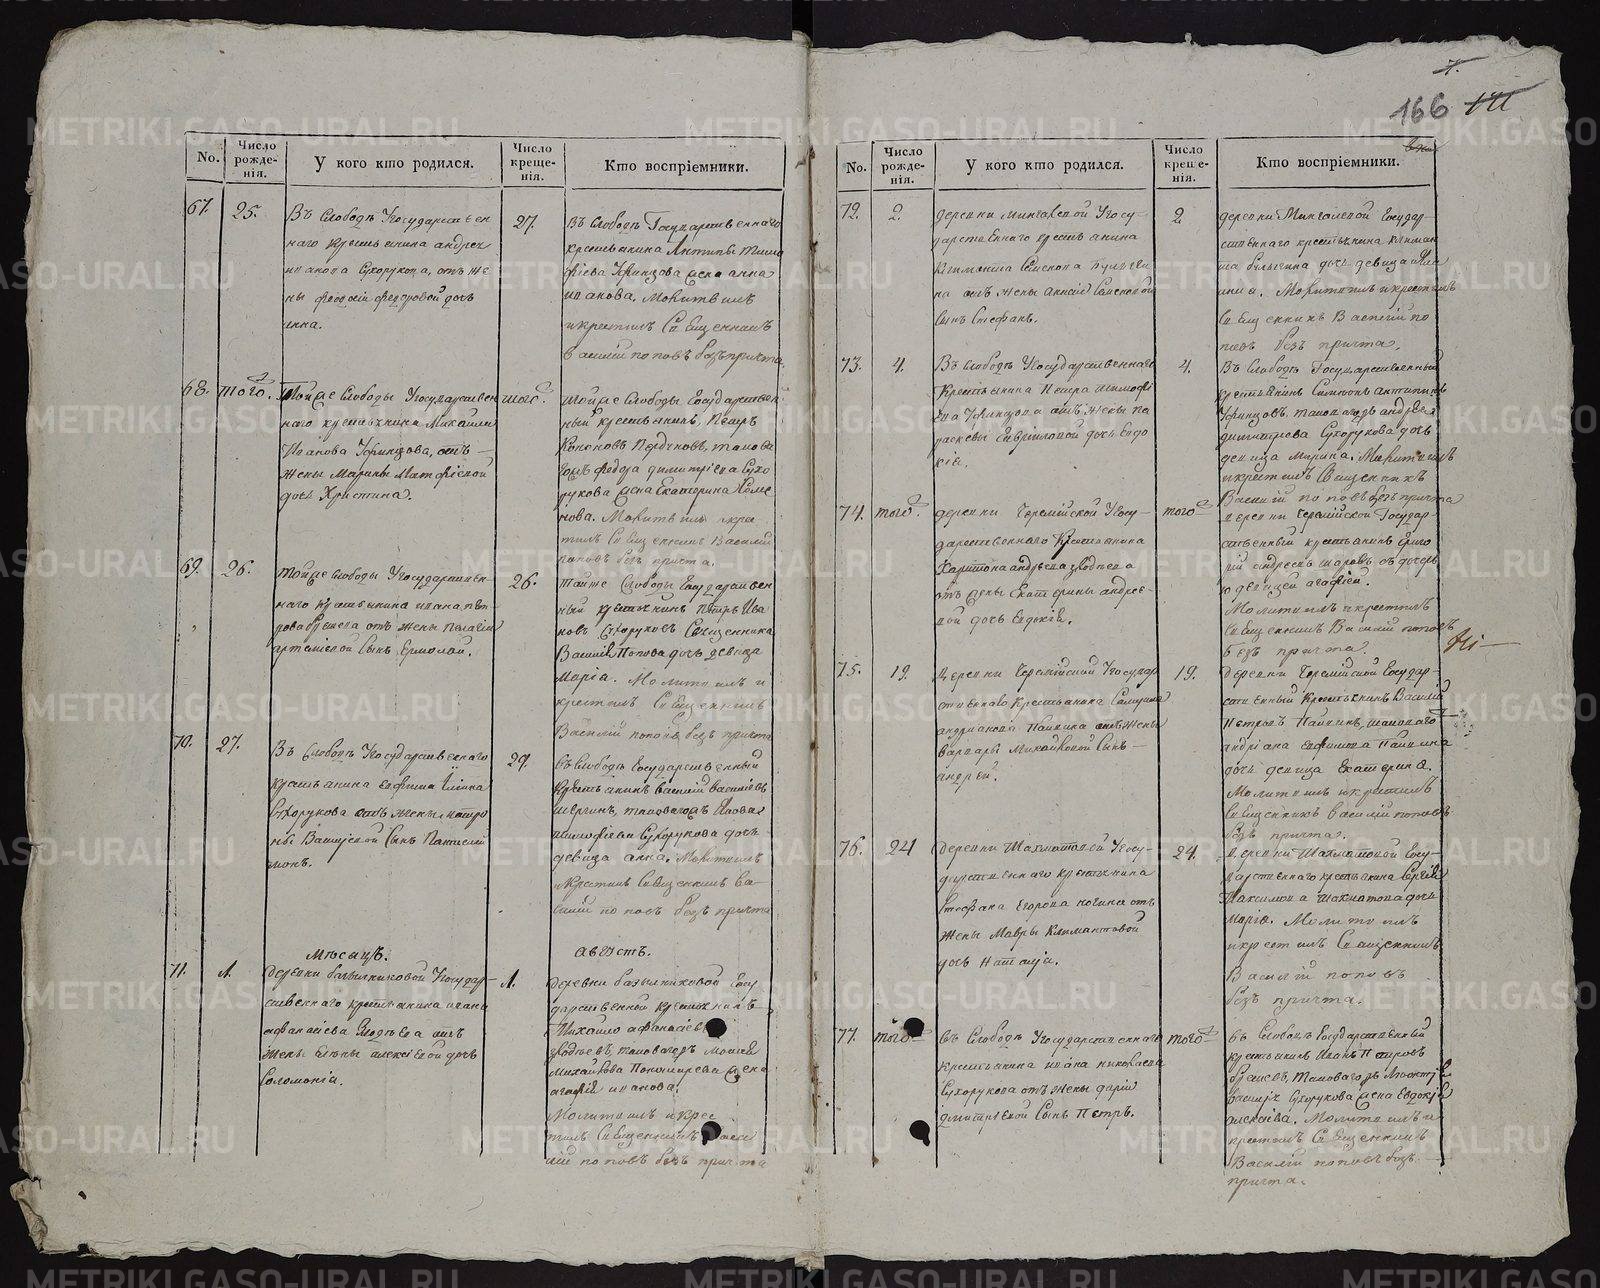 166
No.
Число рожде-нія.
У кого кто родился.
Число креще-нія.
Кто воспріемники.
67.
25.
Въ Слободѣ Государствен
наго крестьянина андрея
иванова Сухорукова, отъ же
ны феодосіи федоровой дочь
анна.
27.
Въ Слободѣ Государственнаго
крестьянина Антипы Тимо
фіева Уфинцова жена анна
иванова. Молитвилъ
икрестилъ Священникъ
василій поповъ безъ причта
68.
того.
Тойже Слободы Государствен
наго крестьянина Михаила
Иванова Уфинцова, отъ
жены Марины Матфіевой
дочь Христина.
того.
тойже Слободы Государствен
ный крестьянинъ, Петръ
федора димитріева Сухо
рукова жена Екатерина
нова. Молитвилъ икре
тилъ Священникъ Василій
поповъ безъ причта.
69.
26.
Тойже Слободы Государствен
наго крестьянина ивана, пет
рова отъ жены Пелагіи
артеміевой Сынъ Ермолай.
26.
Тойже Слободы Государствен
ный крестьянинъ Петръ Ива
новъ Сухоруковъ Священника
Василія Попова дочь девица
Марія. Молитвилъ и
крестилъ Священникъ
Василій поповъ безъ причта
70.
27.
Въ Слободѣ Государственнаго
крестьянина Евфима
Сухорукова отъ жены матро
ны Сынъ Пантелей
монъ.
29.
Въ Слободѣ Государственный
крестьянинъ Василій Васильевъ
таковагожъ Якова
тимофіева Сухорукова дочь
девица анна. Молитвилъ
икрестилъ Священникъ Ва
силій поповъ безъ причта
Мѣсяцъ.
августъ.
71.
1.
деревни Государ-
ственнаго крестьянина ивана
афанасіева отъ
жены Елены алексіевой дочь
Соломонія.
1.
деревни Госу
дарственной крестьянинъ
Михайло афанасіевъ
таковагожъ Моисея
Михайлова Пономарева жена
агафія иванова.
Молитвилъ икрес
тилъ Священникъ Васи
лій поповъ безъ причта
No.
Число рожде-нія.
У кого кто родился.
Число креще-нія.
Кто воспріемники.
72.
2.
деревни Мингалевой Госу-
дарственнаго крестьянина
Климента Семенова Булыги
на отъ жены Анисіи Семеновой
Сынъ Стефанъ.
2
деревни Мингалевой Государ-
ственнаго крестьянина Климен
та Булыгина дочь девица
Молитвилъ икрестилъ
Священникъ Василій по
повъ безъ причта.
73.
4.
Въ Слободѣ Государственнаго
крестьянина Петра тимофі
ева Уфинцова отъ жены Па
раскевы Гавриловой дочь Евдо
кія.
4.
Въ Слободѣ Государственный
крестьянинъ Симеонъ антипинъ
Уфинцовъ, таковагожъ андрея
димитріева Сухорукова дочь
девица Марина. Молитвилъ
икрестилъ Священникъ
Василій поповъ безъ причта
74.
того
деревни Черемійской Госу-
дарственнаго Крестьянина
Харитона андреева
отъ жены Екатерины андре-
вой дочь Евдокія.
того
деревни Черемійской Государ-
ственный крестьянинъ
андреевъ съ дочерь
ю девицей агафіей.
Молитвилъ икрестилъ
Священникъ Василій поповъ
безъ причта.
75.
19.
деревни Черемійской Государ
ственнаго Крестьянина
андріанова Паинина отъ жены
варвары Михайловой Сынъ
андрей.
19.
деревни Черемійской Государ-
ственный Крестьянинъ Василій
Петровъ Паининъ, таковаго
андріана евфимова Паинина
дочь девица Екатерина.
Молитвилъ икрестилъ
Священникъ Василій поповъ
безъ причта.
76.
24
деревни Шахматовой Госу-
дарственнаго крестьянина
Стефана Егорова отъ
жены Мавры Климантовой
дочь Наталія.
24.
деревни Шахматовой Госу-
дарственнаго крестьянина Сергія
Максимова Шахматова дочь
Марія. Молитвилъ
икрестилъ Священникъ
Василій поповъ
безъ причта.
77.
того
въ Слободѣ Государственнаго
крестьянина ивана николаева
Сухорукова отъ жены даріи
дмитріевой Сынъ Петръ.
того
въ Слободѣ Государственный
крестьянинъ Иванъ Петровъ
таковагожъ
Сухорукова жена Евдокія
алексіева. Молитвилъ и
крестилъ Священникъ
Василій поповъ безъ
причта.